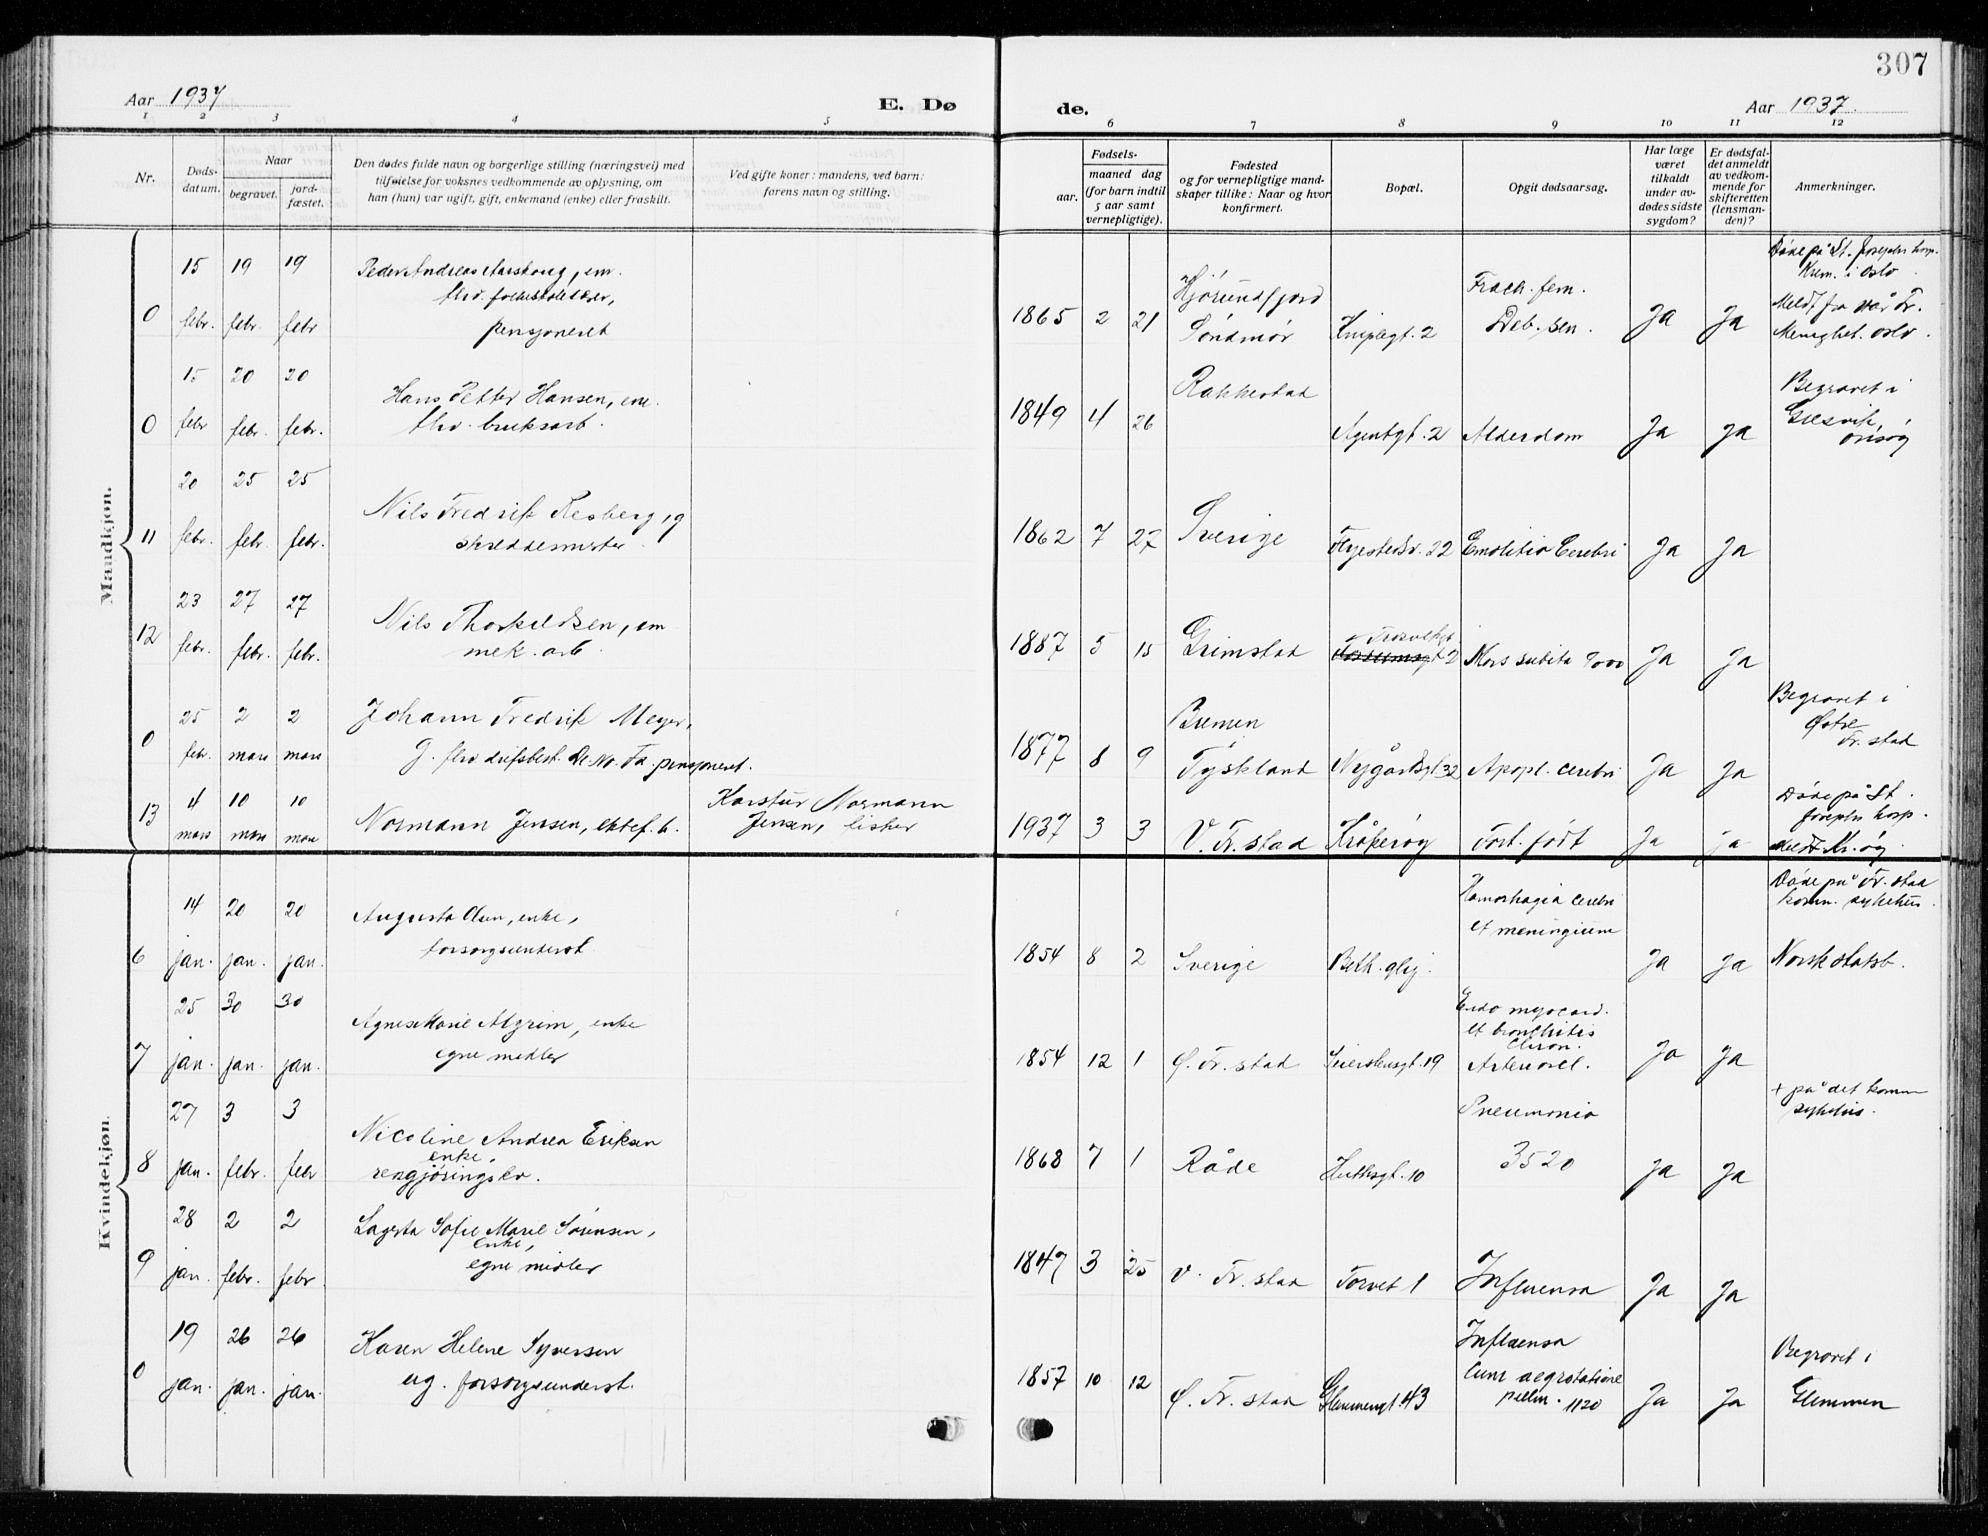 307
Aar 1937
E. Dø
de.
Aar 1937.
1 2 3 4 5 6 7 8 9 10 11 12
Nr.
Døds-
datum.
Naar
begravet.
jord-
fæstet.
Den dødes fulde navn og borgerlige stilling (næringsvei) med
tilføielse for voksnes vedkommende av oplysning, om
han (hun) var ugift, gift, enkemand (enke) eller fraskilt.
Ved gifte koner: mandens, ved barn:
farens navn og stilling.
Fødsels-
aar.
maaned dag
(for barn indtil
5 aar samt
vernepligtige).
Fødested
og for vernepligtige mand-
skaper tillike: Naar og hvor
konfirmert.
Bopæl.
Opgit dødsaarsag.
Har læge
været
tilkaldt
under av-
dødes sidste
sygdom?
Er dødsfal-
det anmeldt
av vedkom-
mende for
skifteretten
(lensman-
den)?
Anmerkninger.
Mandkjøn.
0
15 febr.
19 febr.
19 febr
Peder Andreas Aarskoug, em.
fhv. folkeskolelærer,
pensjoneret
1865 2 21
Hjørundfjord
Søndmør
2
Fract. fem.
Deb. sen.
Ja
Ja
Døde på St. Josephs hosp.
Krem. i Oslo
Meldt fra Vår Fr.
Menighet. Oslo.
0
15 febr
20 febr.
20 febr.
Hans Petter Hansen, em.
fhv. bruksarb.
1849 4 26
Rakkestad
Agentgt. 2
Alderdom
Ja
Ja
Begravet i
Gressvik
Onsøy
11
20 febr.
25 febr.
25 febr.
Nils Fredrik Resberg, g
skreddermester
1862 7 27
Sverige
22
Emolitio Cerebri
Ja
Ja
12
23 febr.
27 febr.
27 febr.
Nils Thorkildsen, em
mek. arb.
1887 5 15
Grimstad
Trosvikgt.
2
Mors subita 9000
Ja
Ja
0
25 febr.
2 mars
2 mars
Johann Fredrik Meyer,
g. fhv driftsbest. De No. Fa. pensjoneret.
1877 8 9
Bremen
Tyskland
Nygårdsgt 32
Apopl. cerebri
Ja
Ja
Begravet i
Østre
Fr. stad
13
4 mars
10 mars
10 mars
Normann Jensen, ektef. b.
Karsten Normann
Jensen, fisker
1937 3 3
V. Fr. stad
Kråkerøy
Fort. født
Ja
ja
Døde på St.
Josephs hosp.
meldt Kr. øy.
Kvindekjøn.
6
14 jan.
20 jan.
20 jan.
Augusta Olsen, enke,
forsorgsunderst.
1854 8 2
Sverige
Beth. glj.
Hæmorhagia cerebri
et meningium
Ja
Ja
Døde på Fr. stad
komm. sykehus.
Norsk statsb.
7
25 jan.
30 jan.
30 jan.
Agnes Marie Algrim, enke
egne midler
1854 12 1
Ø. Fr. stad
Seierstensgt. 19
Endo myocard.
et bronchitis
chron.
Arterioscl.
Ja
Ja
8
27 jan.
3 febr.
3 febr
Nicoline Andrea Eriksen
enke,
rengjøringsko.
1868 7 1
Råde
Huthsgt. 10
Pneumonia
3520
Ja
Ja
+ på det komm
sykehus.
9
28 jan.
2 febr.
2 febr.
Lagerta Sofie Marie Sørensen,
enke,
egne midler
1847 3 25
V. Fr. stad
Torvet 1
Influensa
Ja
Ja
0
19 jan.
26 jan.
26 jan.
Karen Helene Syversen
ug. forsorgsunderst.
1857 10 12
Ø. Fr. stad
Glemmengt. 43
Influensa
cum aegrotatione
pulm. 1120
Ja
Ja
Begravet i
Glemmen